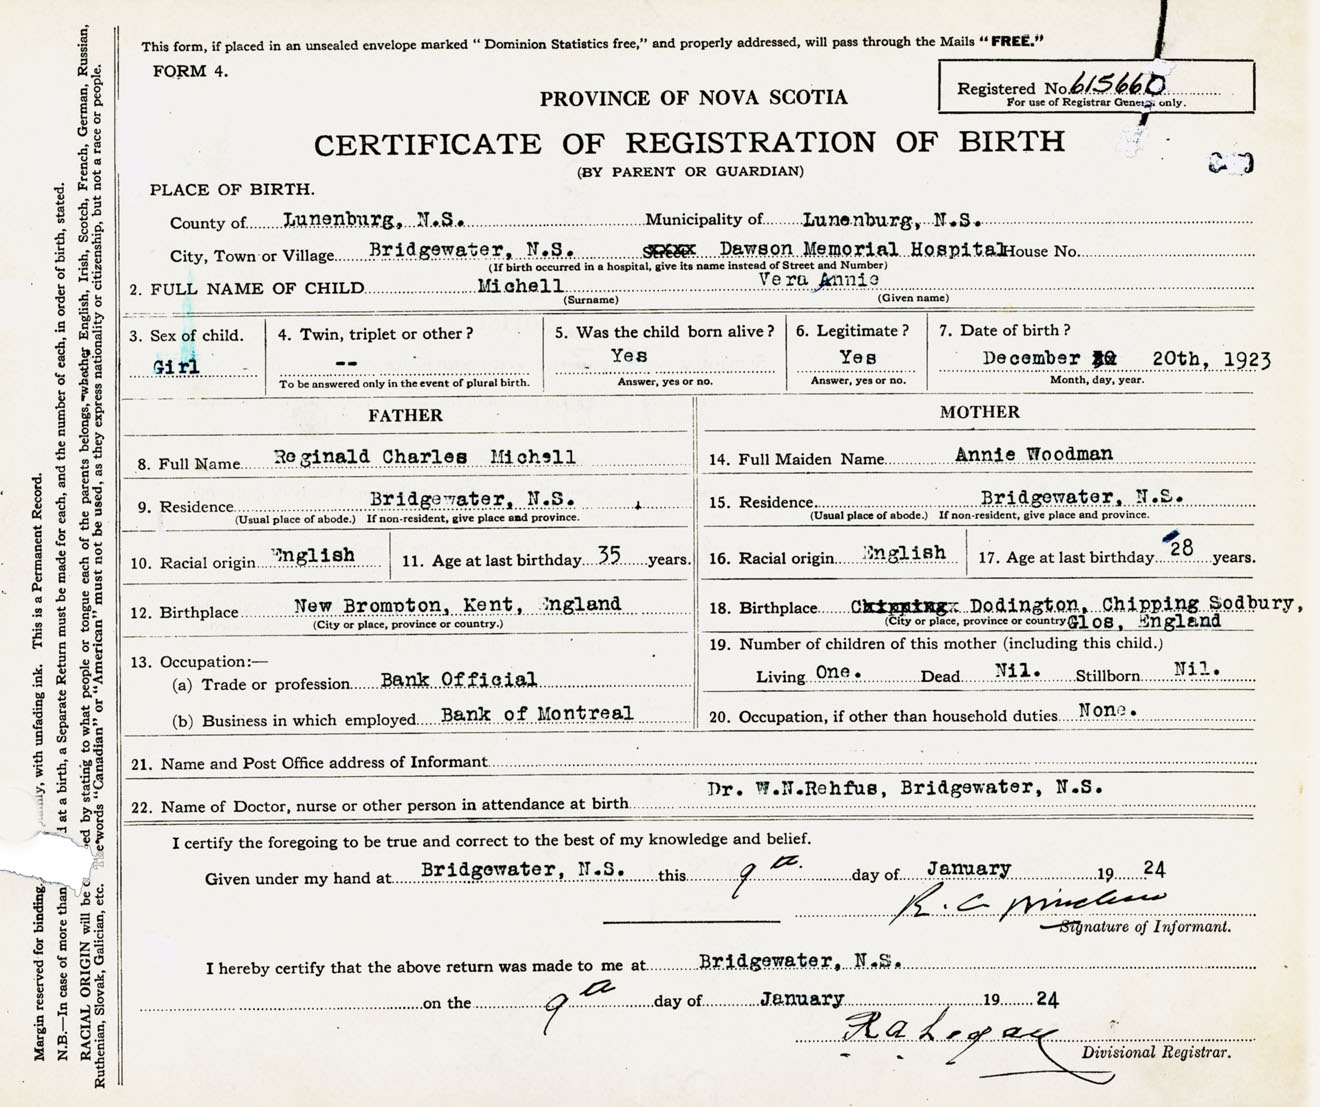 This form, if placed in an unsealed envelope marked " Dominion Statistics free," and properly addressed, will pass through the Mails "FREE."
FORM 4.
Registered No. 615660
For use of Registrar General only.
PROVINCE OF NOVA SCOTIA
CERTIFICATE OF REGISTRATION OF BIRTH
(BY PARENT OR GUARDIAN)
PLACE OF BIRTH.
County of Lunenburg, N.S. Municipality of Lunenburg, N.S.
City, Town or Village Bridgewater, N.S. Street Dawson Memorial Hospital House No.
(If birth occurred in a hospital, give its name instead of Street and Number)
2. FULL NAME OF CHILD Michell Vera Annie
(Surname) (Given name)
3. Sex of child. 4. Twin, triplet or other? 5. Was the child born alive? 6. Legitimate? 7. Date of birth?
Girl -- Yes Yes December 20th, 1923
To be answered only in the event of plural birth. Answer, yes or no. Answer, yes or no. Month, day, year.
FATHER MOTHER
8. Full Name Reginald Charles Michell 14. Full Maiden Name Annie Woodman
9. Residence Bridgewater, N.S. 15. Residence Bridgewater, N.S.
(Usual place of abode.) If non-resident, give place and province. (Usual place of abode.) If non-resident, give place and province.
10. Racial origin English 11. Age at last birthday 35 years. 16. Racial origin English 17. Age at last birthday 28 years.
12. Birthplace New Brompton, Kent, England 18. Birthplace Chipping Dodington, Chipping Sodbury,
(City or place, province or country.) (City or place, province or country Glos, England
19. Number of children of this mother (including this child.)
13. Occupation:—
Living One. Dead Nil. Stillborn Nil.
(a) Trade or profession Bank Official
(b) Business in which employed Bank of Montreal 20. Occupation, if other than household duties None.
21. Name and Post Office address of Informant
22. Name of Doctor, nurse or other person in attendance at birth Dr. W.N.Rehfus, Bridgewater, N.S.
I certify the foregoing to be true and correct to the best of my knowledge and belief.
Given under my hand at Bridgewater, N.S. this 9th. day of January 19 24
R. C. Michell
Signature of Informant.
I hereby certify that the above return was made to me at Bridgewater, N.S.
on the 9th day of January 19 24
R A Logan
Divisional Registrar.
Margin reserved for binding. with unfading ink. This is a Permanent Record.
N.B.—In case of more than at a birth, a Separate Return must be made for each, and the number of each, in order of birth, stated.
RACIAL ORIGIN will be by stating to what people or tongue each of the parents belongs, whether English, Irish, Scotch, French, German, Russian,
Ruthenian, Slovak, Galician, etc. The words "Canadian" or "American" must not be used, as they express nationality or citizenship, but not a race or people.